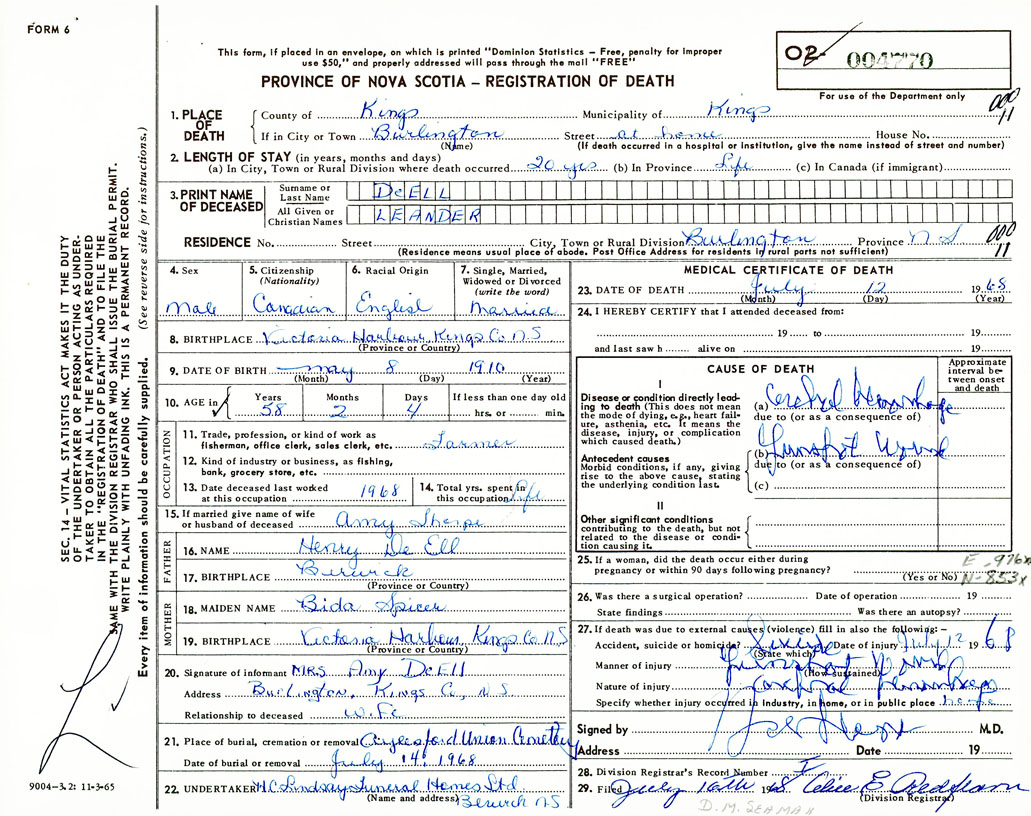 FORM 6
This form, if placed in an envelope, on which is printed "Dominion Statistics – Free, penalty for improper
use $50," and properly addressed will pass through the mail "FREE"
PROVINCE OF NOVA SCOTIA – REGISTRATION OF DEATH
02- 004770
For use of the Department only
000
11
1. PLACE OF DEATH
County of Kings Municipality of Kings
If in City or Town Burlington Street at home House No.
(Name) (If death occurred in a hospital or institution, give the name instead of street and number)
2. LENGTH OF STAY (in years, months and days)
(a) In City, Town or Rural Division where death occurred 20 yrs (b) In Province Life (c) In Canada (if immigrant)
3. PRINT NAME OF DECEASED
Surname or Last Name DeELL
All Given or Christian Names LEANDER
RESIDENCE No. Street City, Town or Rural Division Burlington Province N S
000
11
(Residence means usual place of abode. Post Office Address for residents in rural parts not sufficient)
4. Sex Male
5. Citizenship (Nationality) Canadian
6. Racial Origin English
7. Single, Married, Widowed or Divorced (write the word) Married
8. BIRTHPLACE Victoria Harbour, Kings Co. N S
(Province or Country)
9. DATE OF BIRTH May 8 1910
(Month) (Day) (Year)
10. AGE in Years Months Days If less than one day old
58 2 4 hrs. or min.
OCCUPATION
11. Trade, profession, or kind of work as
fisherman, office clerk, sales clerk, etc. Farmer
12. Kind of industry or business, as fishing,
bank, grocery store, etc.
13. Date deceased last worked
at this occupation 1968
14. Total yrs. spent in
this occupation Life
15. If married give name of wife
or husband of deceased Amy Sharpe
FATHER
16. NAME Henry De Ell
17. BIRTHPLACE Berwick
(Province or Country)
MOTHER
18. MAIDEN NAME Bida Spicer
19. BIRTHPLACE Victoria Harbour, Kings Co. N S
(Province or Country)
20. Signature of informant MRS. Amy DeEll
Address Burlington, Kings Co., N S
Relationship to deceased wife
21. Place of burial, cremation or removal Aylesford Union Cemetery
Date of burial or removal July 14, 1968
22. UNDERTAKER H C Lindsay Funeral Homes Ltd
(Name and address) Berwick NS
MEDICAL CERTIFICATE OF DEATH
23. DATE OF DEATH July 12 1968
(Month) (Day) (Year)
24. I HEREBY CERTIFY that I attended deceased from:
19 to 19
and last saw h alive on 19
CAUSE OF DEATH
Approximate interval between onset and death
I
Disease or condition directly leading to death (This does not
mean the mode of dying, e.g., heart failure, asthenia, etc. It means the
disease, injury, or complication
which caused death.)
(a) Cerebral Hemorrhage
due to (or as a consequence of)
Antecedent causes
Morbid conditions, if any, giving
rise to the above cause, stating
the underlying condition last.
(b) Gunshot Wound
due to (or as a consequence of)
(c)
II
Other significant conditions
contributing to the death, but not
related to the disease or condition causing it.
25. If a woman, did the death occur either during
pregnancy or within 90 days following pregnancy?
(Yes or No)
E-976x
N-853x
26. Was there a surgical operation? Date of operation 19
State findings Was there an autopsy?
27. If death was due to external causes (violence) fill in also the following:–
Accident, suicide or homicide? Suicide Date of injury July 12 1968
(State which)
Manner of injury Gunshot Wound
(How sustained)
Nature of injury Cerebral Hemorrhage
Specify whether injury occurred in Industry, in home, or in public place home
Signed by M.D.
Address Date 19
28. Division Registrar's Record Number
29. Filed July 16th 1968
(Division Registrar)
D.M. SEAMAN
SEC. 14 – VITAL STATISTICS ACT MAKES IT THE DUTY
OF THE UNDERTAKER OR PERSON ACTING AS UNDERTAKER TO OBTAIN ALL THE PARTICULARS REQUIRED
IN THE "REGISTRATION OF DEATH" AND TO FILE THE
SAME WITH THE DIVISION REGISTRAR WHO SHALL ISSUE THE BURIAL PERMIT.
WRITE PLAINLY WITH UNFADING INK. THIS IS A PERMANENT RECORD.
Every item of information should be carefully supplied. (See reverse side for instructions.)
9004-3.2: 11-3-65